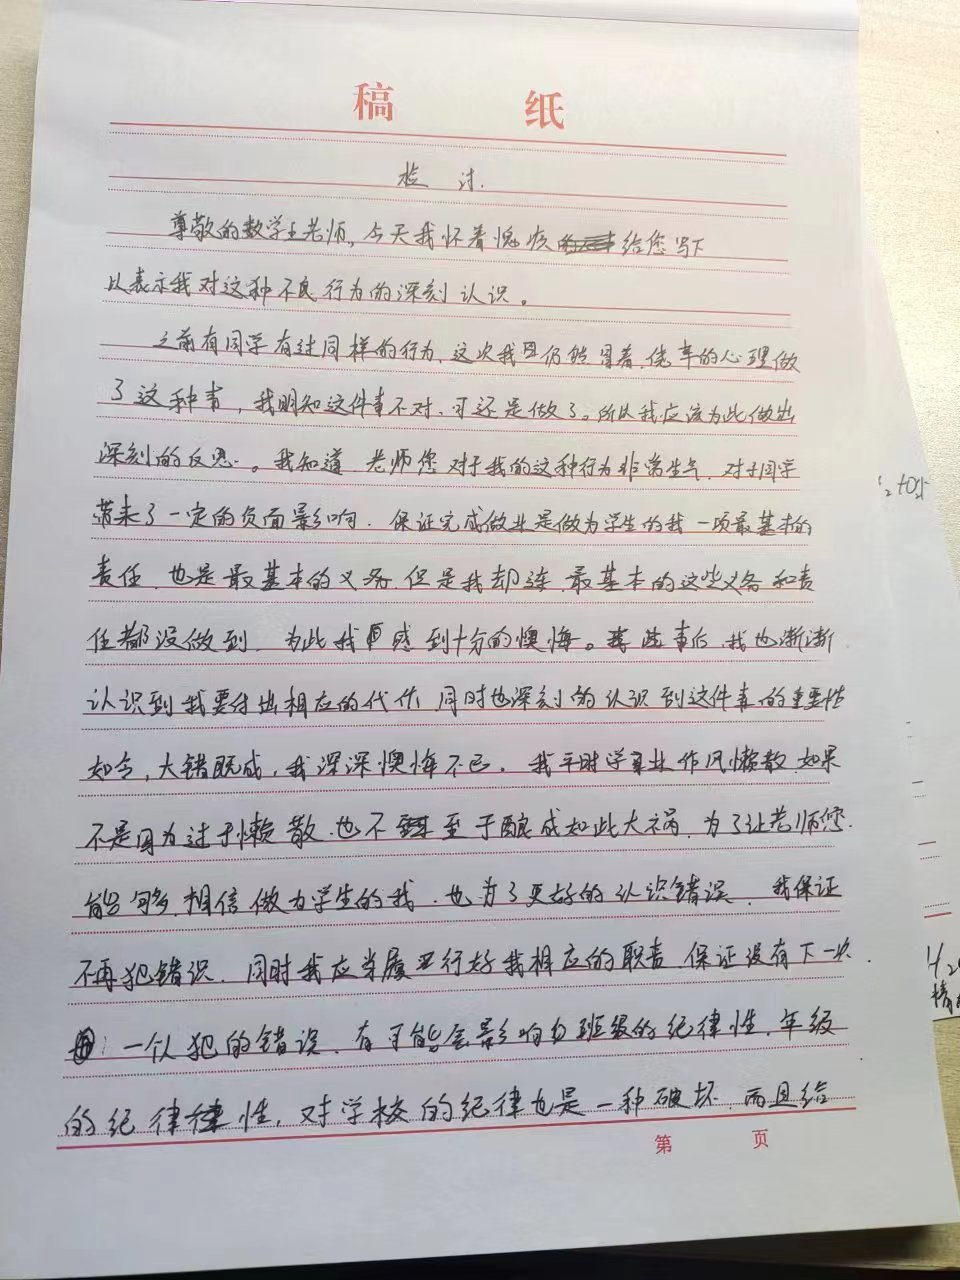 稿 纸
检 讨.
尊敬的数学王老师,今天我怀着愧疚给您写下
以表示我对这种不良行为的深刻认识。
之前有同学有过同样的行为,这次我仍然冒着,侥幸的心理做
了这种事,我明知这件事不对、可还是做了。所以我应该为此做出
深刻的反思。我知道,老师您对于我的这种行为非常生气,对于同学
带来了一定的负面影响.保证完成做业是做为学生的我一项最基本的
责任.也是最基本的义务.但是我却连,最基本的这些义务和责
任都没做到.为此我感到十分的懊悔。事后,我也渐渐
认识到我要付出相应的代价,同时也深刻的认识到这件事的重要性
如今,大错既成,我深深懊悔不已.我平时学业作风懒散.如果
不是因为过于懒散.也不至于酿成如此大祸,为了让老师您.
能够.相信做为学生的我.也为了更好的认识错误.我保证
不再犯错误.同时我应当履行好我相应的职责.保证没有下一次.
一个人犯的错误.有可能会影响班级的纪律性.年级
的纪律性.对学校的纪律也是一种破坏.而且给
第 页